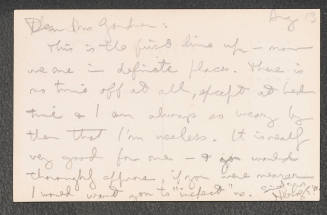 Aug 13
Dear Mrs Gardner:
This is the first line up – now
we are in definite places. There is
no time off at all, except at bed
time & I am always so weary by
then that I'm useless. It is really
very good for one – & you would
thoroughly approve, if you were nearer
I would want you to "inspect" us.